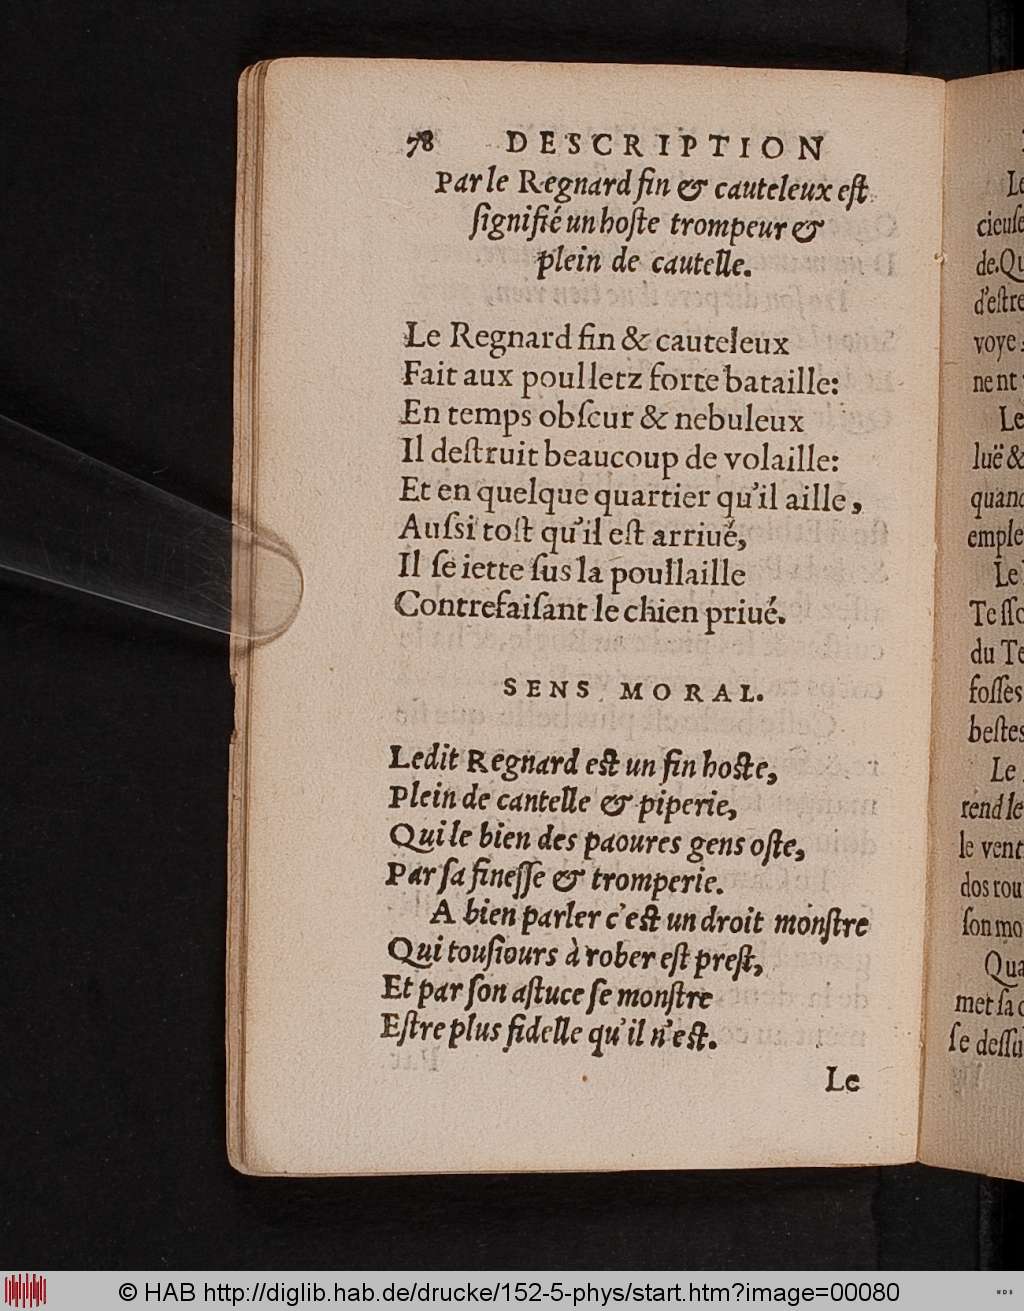 78 DESCRIPTION
Par le Regnard fin & cauteleux eſt
ſignifié un hoſte trompeur &
plein de cautelle.
Le Regnard fin & cauteleux
Fait aux poulletz forte bataille:
En temps obſcur & nebuleux
Il deſtruit beaucoup de volaille:
Et en quelque quartier qu'il aille,
Auſsi toſt qu'il eſt arriué,
Il ſe iette ſus la poullaille
Contrefaiſant le chien priué.
SENS MORAL.
Ledit Regnard eſt un fin hoſte,
Plein de cantelle & piperie,
Qui le bien des paoures gens oſte,
Par ſa fineſſe & tromperie.
A bien parler c'eſt un droit monſtre
Qui touſiours à rober eſt preſt,
Et par ſon aſtuce ſe monſtre
Eſtre plus fidelle qu'il n'eſt.
Le
Le
cieuſe
de. Qu
d'eſtre
voye
nent
Le
luë &
quand
emple
Le
Te ſſo
du Te
foſſes
beſtes
Le
rend le
le vent
dos rou
ſon mo
Qua
met ſa
ſe deſſu
© HAB http://diglib.hab.de/drucke/152-5-phys/start.htm?image=00080